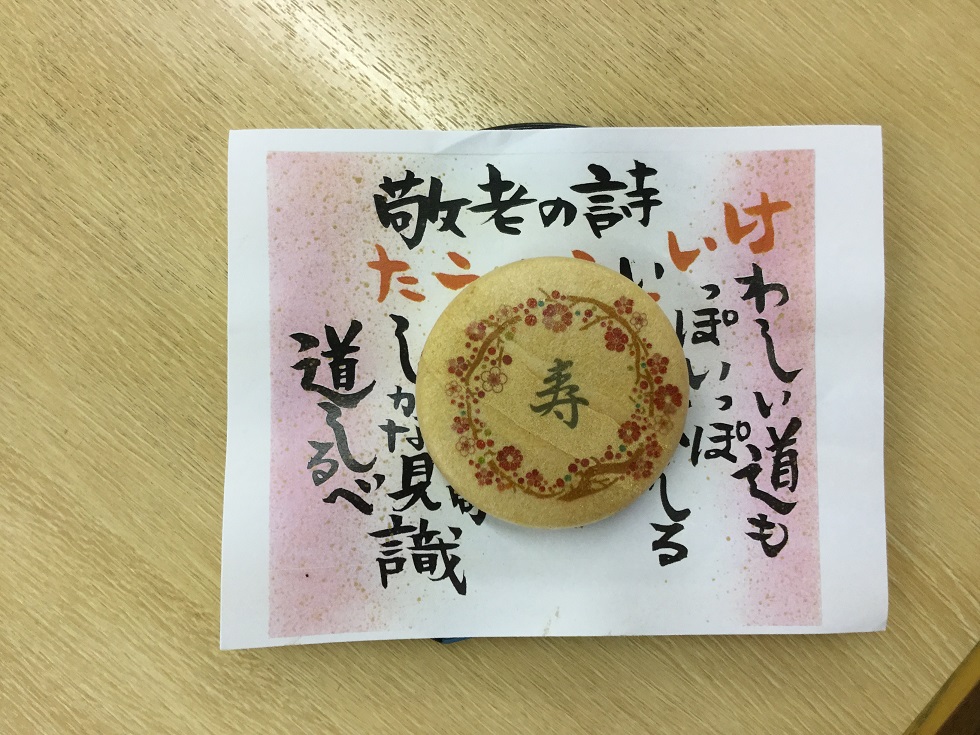 敬老の詩
けわしい道も
いっぽいっぽ
しる
たしかな見識
道しるべ
寿